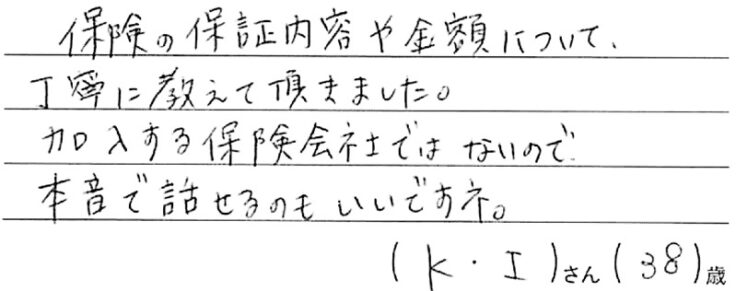 保険の保証内容や金額について、
丁寧に教えて頂きました。
加入する保険会社ではないので
本音で話せるのもいいですネ。
(K・I)さん(38)歳